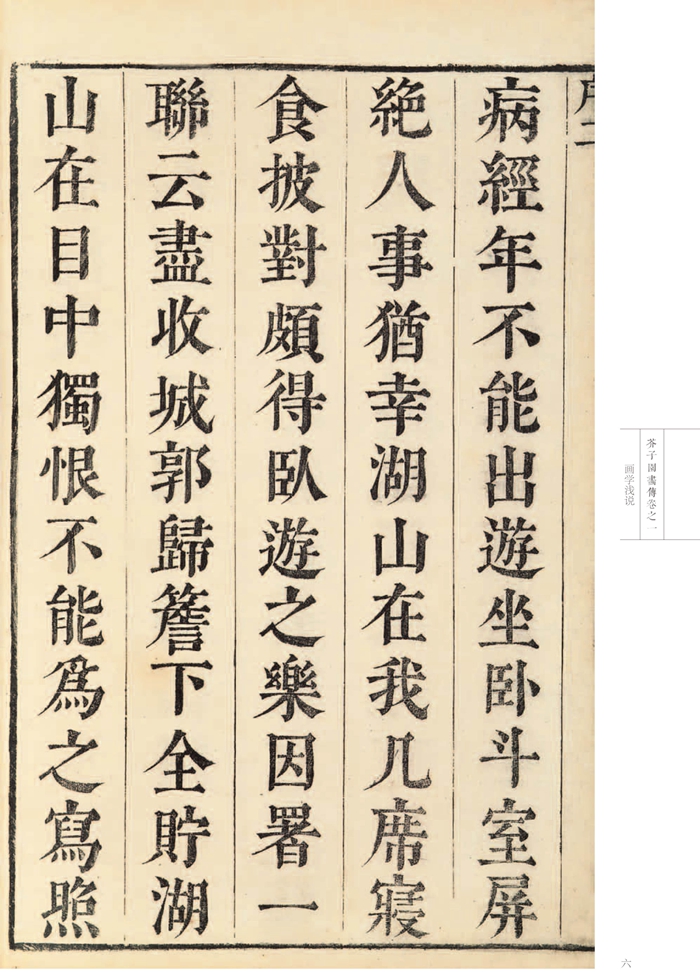 病經年不能出遊坐卧斗室屏
絶人事猶幸湖山在我几席寢
食披對頗得臥遊之樂因署一
聯云盡收城郭歸簷下全貯湖
山在目中獨恨不能為之寫照
芥子園畫傳卷之一
画学浅说
六